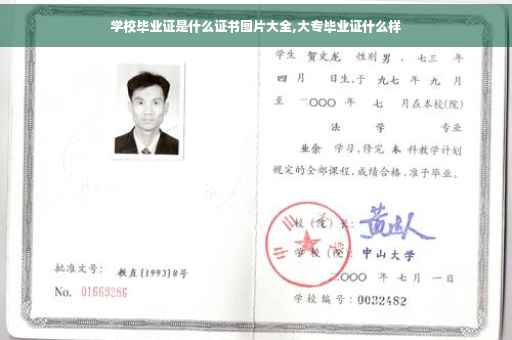 学校毕业证是什么证书图片大全,大专毕业证什么样
学生 贺文龙 性别 男 、七三 年
四 月 日生,于 九七 年 九 月
至 二〇〇〇 年 七 月在本校(院)
法 学 专业
业余 学习,修完 本 科教学计划
规定的全部课程,成绩合格,准予毕业。
校(院)长:
学校(院): 中山大学
二〇〇〇 年 七 月 一 日
学校编号: 0032482
批准文号: 教直[1993]8号
No. 01669286